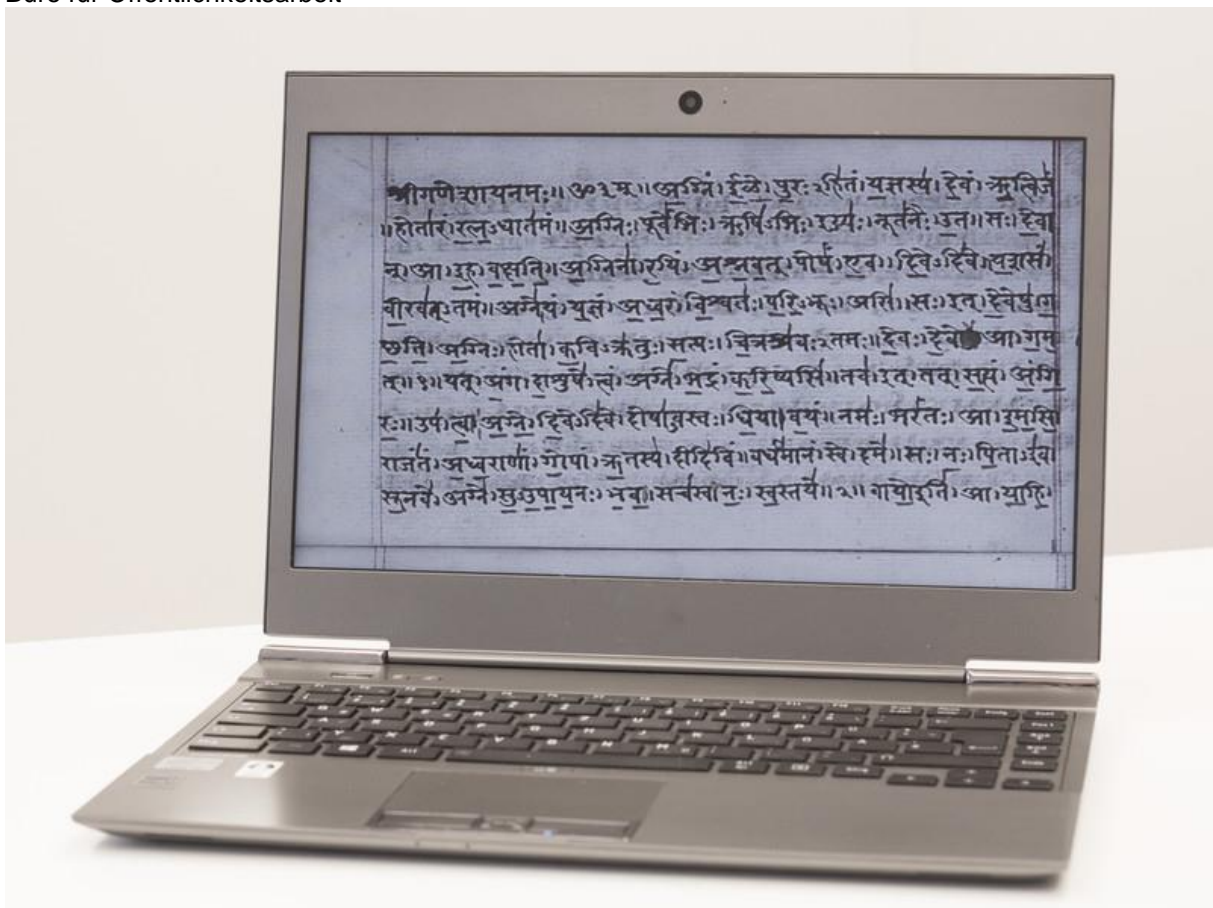 Büro für Öffentlichkeitsarbeit
श्रीगणेशायनमः॥ ॐ३म्॥ अ॒ग्निं। ई॒ळे॒। पु॒रःऽहि॑तं। य॒ज्ञस्य॑। दे॒वं। ऋ॒त्विजं॑
॥होता॑रं। र॒त्न॒ऽधात॑मं॥ अ॒ग्निः। पूर्वे॑भिः। ऋषि॑ऽभिः। ईड्यः॑। नूत॑नैः। उ॒त॥ सः। दे॒वा
न्। आ। इ॒ह। व॒क्ष॒ति॒॥ अ॒ग्निना॑। र॒यिं। अ॒श्न॒व॒त्। पोषं॑। ए॒व। दि॒वेऽदि॑वे॥ य॒शसं॑।
वी॒रव॑त्ऽतमं॥ अग्ने॑। यं। य॒ज्ञं। अ॒ध्व॒रं। वि॒श्वतः॑। प॒रि॒ऽभूः। असि॑॥ सः। इत्। दे॒वेषु॑। ग॒
च्छ॒ति॒॥ अ॒ग्निः। होता॑। क॒विऽक्र॑तुः। स॒त्यः। चि॒त्रश्र॑वःऽतमः॥ दे॒वः। दे॒वे आ। ग॒म॒
त्॥१॥ यत्। अं॒ग। दा॒शुषे॑। त्वं। अग्ने॑। भ॒द्रं। क॒रि॒ष्यसि॑॥ तव॑। इत्। तत्। स॒त्यं। अं॒गि॒
रः॒॥ उप॑। त्वा॒। अ॒ग्ने॒। दि॒वेऽदि॑वे। दोषा॑ऽवस्तः। धि॒या। व॒यं॥ नमः॑। भरं॑तः। आ। इ॒म॒सि॒
राजं॑तं। अ॒ध्व॒राणां॑। गो॒पां। ऋ॒तस्य॑। दीदि॑विं॥ वर्ध॑मानं। स्वे। दमे॑॥ सः। नः॒। पि॒ताऽइ॑व।
सू॒नवे॑। अग्ने॑। सु॒ऽउ॒पा॒य॒नः। भ॒व॒॥ सच॑स्व। नः॒। स्व॒स्तये॑॥२॥ वायो॒इति॑। आ। या॒हि॒।